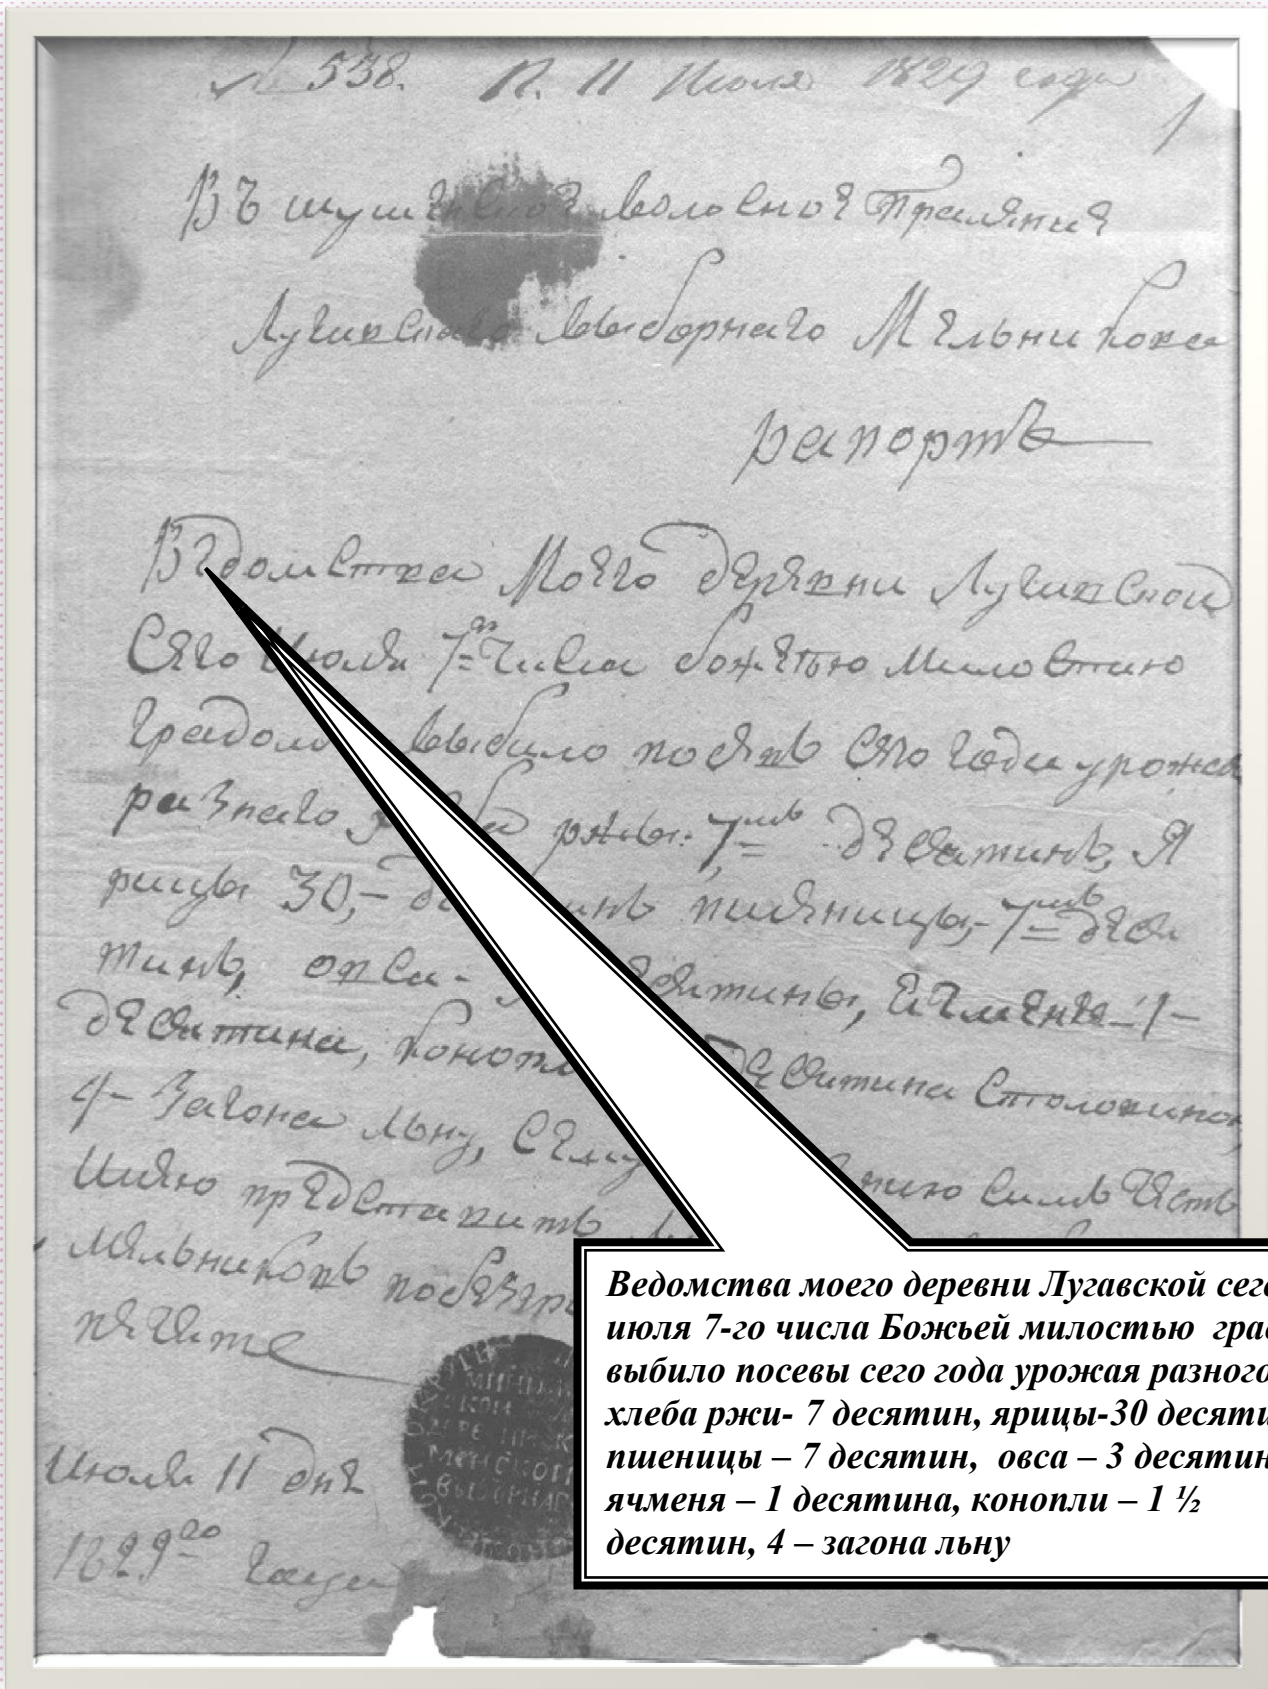 № 538. П. 11 Июля 1829 года
1
Въ шушенское волосное Правление
Лугавскаго выборнаго Мельникова
рапортъ
Ведомства Моего деревни Лугавской
Сего Июля 7го числа божьею милостию
градом выбило посевъ сего года урожая
разнаго ржы. 7мь десятинъ, Я
рицы 30,- пшеницы,- 7мь деся
тинъ, овса - ячменя 1-
десятина, десятина Столовиною,
4- Загона льну,
Имею представить
Мельниковъ
печать
Июля 11 дня
1829го года
Ведомства моего деревни Лугавской сег
июля 7-го числа Божьей милостью гра
выбило посевы сего года урожая разного
хлеба ржи- 7 десятин, ярицы-30 десяти
пшеницы – 7 десятин, овса – 3 десятин
ячменя – 1 десятина, конопли – 1 ½
десятин, 4 – загона льну